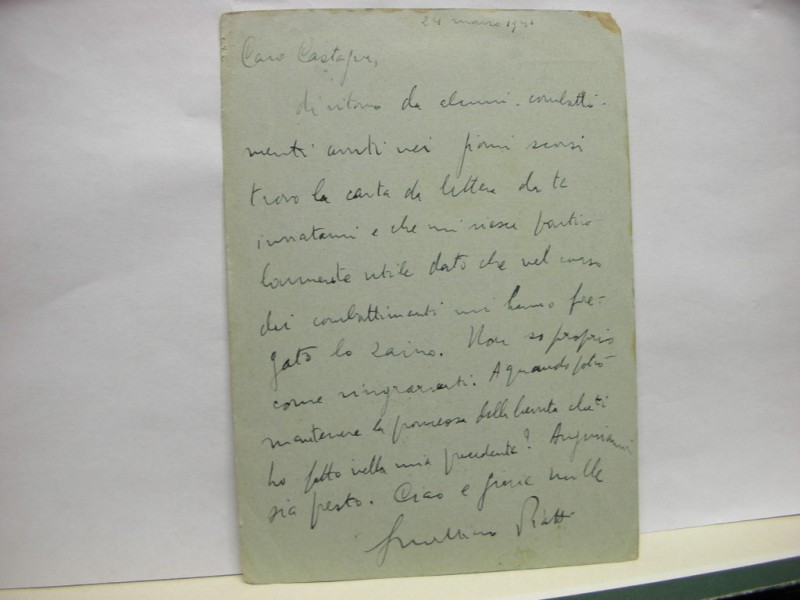 24 marzo 194
Caro Castagne,
di ritorno da alcuni combatti-
menti avuti nei giorni scorsi
trovo la carta da lettera da te
inviatami e che mi riesce partico-
larmente utile dato che nel corso
dei combattimenti mi hanno fre-
gato lo zaino. Non so proprio
come ringraziarti. A quando potrò
mantenere la promessa della bevuta che ti
ho fatto nella mia precedente? Auguriamoci
sia presto. Ciao e grazie mille
Piatti